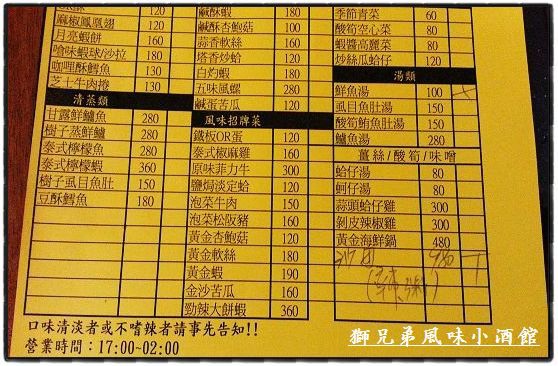 120
麻椒鳳凰翅 120
月亮蝦餅 160
嗆味蝦球/沙拉 180
咖哩酥鱈魚 130
芝士牛肉捲 130
清蒸類
甘露鮮鱸魚 280
樹子蒸鮮鱸 280
泰式檸檬魚 280
泰式檸檬蝦 360
樹子虱目魚肚 150
豆酥鱈魚 180
鹹酥蝦 180
鹹酥杏鮑菇 100
蒜香軟絲 160
塔香炒蛤 120
白灼蝦 180
五味風螺 280
鹹蛋苦瓜 120
風味招牌菜
鐵板OR蛋 120
泰式椒麻雞 160
原味菲力牛 300
鹽焗淡定蛤 120
泡菜牛肉 150
泡菜松阪豬 160
黃金杏鮑菇 120
黃金軟絲 180
黃金蝦 190
金沙苦瓜 160
勁辣大餅蝦 360
季節青菜 60
酸筍空心菜 80
蝦醬高麗菜 80
炒絲瓜蛤仔 120
湯類
鮮魚湯 100
虱目魚肚湯 150
酸筍鮪魚肚湯 150
鱸魚湯 280
薑絲/酸筍/味噌
蛤仔湯 80
蚵仔湯 80
蒜頭蛤仔雞 300
剝皮辣椒雞 300
黃金海鮮鍋 480
口味清淡者或不嗜辣者請事先告知!!
營業時間：17:00~02:00
獅兄弟風味小酒館